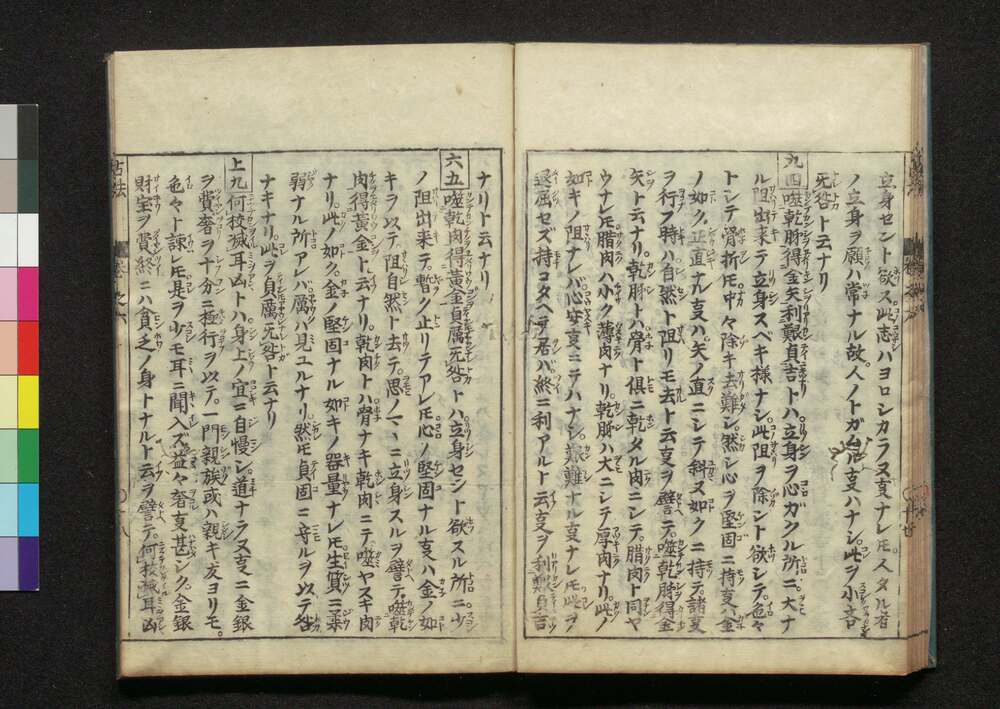 立身セント欲ス此志ハヨロシカラヌ叓ナレ𪜈人タル者
ノ立身ヲ願ハ常ナル故人ノトガム叓ハナシ此ヲ小吝
无咎ト云ナリ
九四噬乾胏得金矢利艱貞吉トハ立身ヲ心ガクル所ニ大ナ
ル阻出来テ立身スベキ様ナシ此阻ヲ除ント欲シテ色々
トシテ骨折𪜈中々除キ去難シ然シ心ヲ堅固ニ持叓ハ金
ノ如ク正直ナル叓ハ矢ノ直ニシテ斜ヌ如クニ持テ諸叓
ヲ行フ時ハ自然ト阻リモ去ト云叓ヲ譬テ噬乾胏得金
矢ト云ナリ乾胏トハ骨ト倶ニ乾タル肉ニシテ腊肉ト同ヤ
ウナレ𪜈腊肉ハ小ク薄肉ナリ乾胏ハ大ニシテ厚肉ナリ此ノ
如キノ阻ナレバ心安叓ニテハナシ艱難ナル叓ナレ𪜈此ヲ
退屈セズ持コタヘテ居ハ終ニ利アルト云叓ヲ利艱貞吉
ナリト云ナリ
六五噬乾肉得黄金貞厲无咎トハ立身セント欲スル所ニ少
ノ阻出来テ暫ク止リテアレ𪜈心ノ堅固ナル叓ハ金ノ如
キヲ以テ阻自然ト去テ思ノマヽニ立身スルヲ譬テ噬乾
肉得黄金ト云ナリ乾肉トハ骨ナキ乾肉ニテ噬ヤスキ肉
ナリ此ノ如ク金ノ堅固ナル如キノ器量ナレ𪜈生質ニ柔
弱ナル所アレバ厲ハ見ユルナリ然𪜈貞固ニ守ルヲ以テ咎
ナキナリ此ヲ貞厲无咎ト云ナリ
上九何校滅耳凶トハ身上ノ宜ニ自慢シ道ナラヌ叓ニ金銀
ヲ費奢ヲ十分ニ極行ヲ以テ一門親族或ハ親キ友ヨリモ
色々ト諫レ𪜈是ヲ少モ耳ニ聞入ズ益々奢叓甚シク金銀
財宝ヲ費終ニハ貧乏ノ身トナルト云ヲ譬テ何校滅耳凶